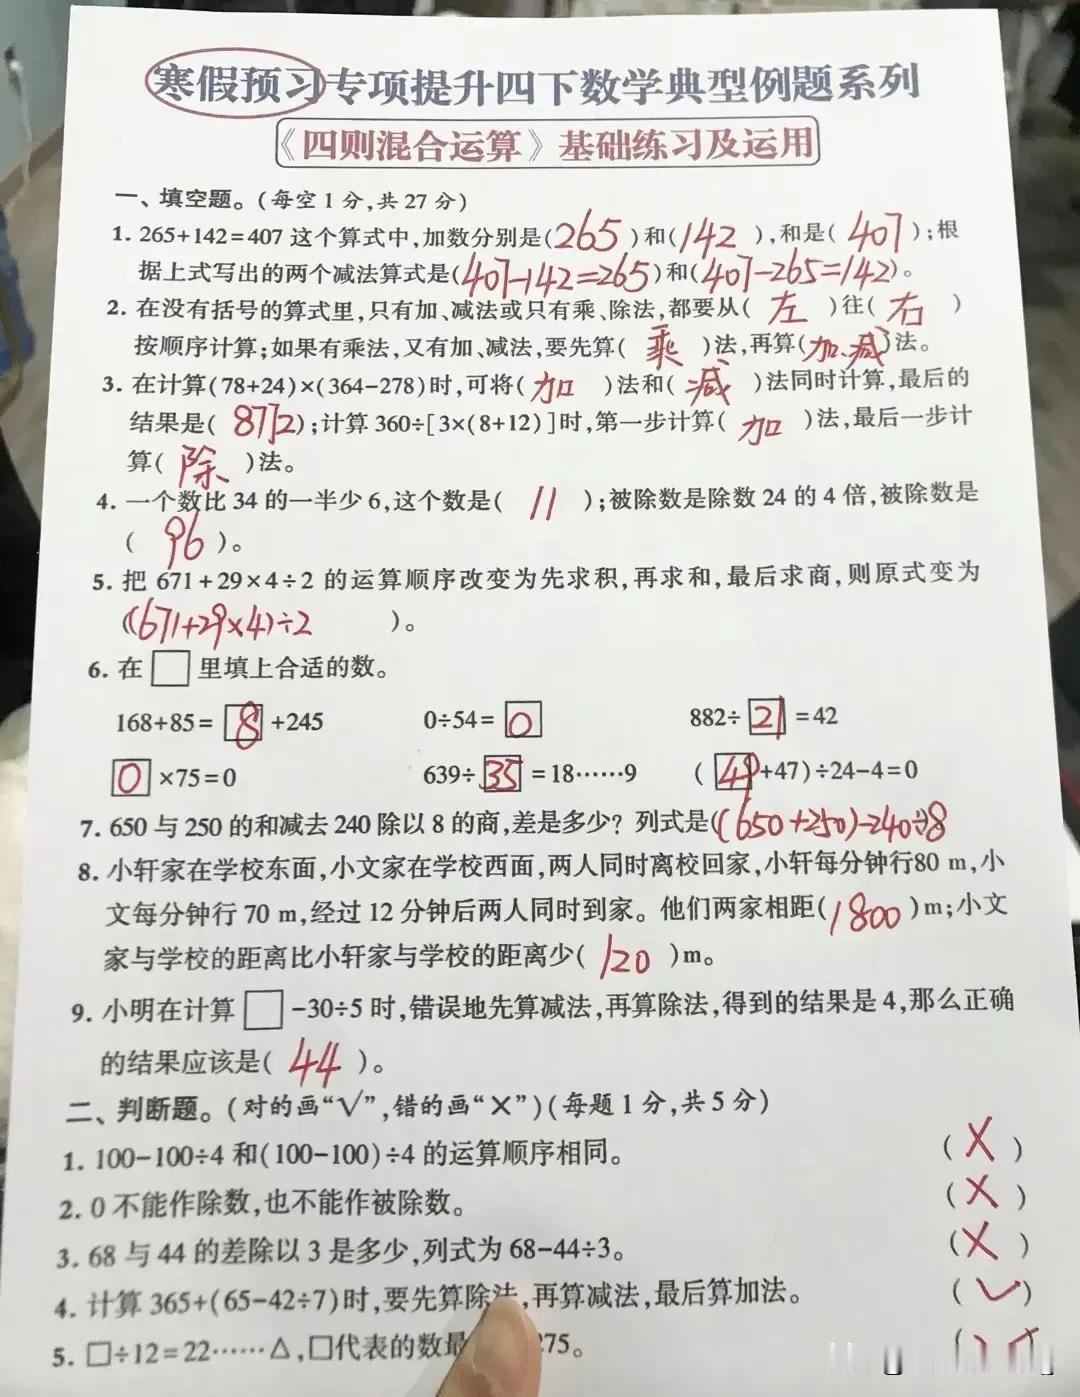 寒假预习专项提升四下数学典型例题系列
《四则混合运算》基础练习及运用
一、填空题。(每空1分,共27分)
1. 265+142=407这个算式中,加数分别是(265)和(142),和是(407);根
据上式写出的两个减法算式是(407-142=265)和(407-265=142)。
2. 在没有括号的算式里,只有加、减法或只有乘、除法,都要从(左)往(右)
按顺序计算;如果有乘法,又有加、减法,要先算(乘)法,再算(加、减)法。
3. 在计算(78+24)×(364-278)时,可将(加)法和(减)法同时计算,最后的
结果是(8772);计算360÷[3×(8+12)]时,第一步计算(加)法,最后一步计
算(除)法。
4. 一个数比34的一半少6,这个数是(11);被除数是除数24的4倍,被除数是
(96)。
5. 把671+29×4÷2的运算顺序改变为先求积,再求和,最后求商,则原式变为
((671+29×4)÷2)。
6. 在□里填上合适的数。
168+85=8+245 0÷54=0 882÷21=42
0×75=0 639÷35=18……9 (49+47)÷24-4=0
7. 650与250的和减去240除以8的商,差是多少?列式是((650+250)-240÷8)
8. 小轩家在学校东面,小文家在学校西面,两人同时离校回家,小轩每分钟行80 m,小
文每分钟行70 m,经过12分钟后两人同时到家。他们两家相距(1800)m;小文
家与学校的距离比小轩家与学校的距离少(120)m。
9. 小明在计算□-30÷5时,错误地先算减法,再算除法,得到的结果是4,那么正确
的结果应该是(44)。
二、判断题。(对的画“√”,错的画“×”)(每题1分,共5分)
1. 100-100÷4和(100-100)÷4的运算顺序相同。 (×)
2. 0不能作除数,也不能作被除数。 (×)
3. 68与44的差除以3是多少,列式为68-44÷3。 (×)
4. 计算365+(65-42÷7)时,要先算除法,再算减法,最后算加法。 (√)
5. □÷12=22……△,□代表的数最 275。